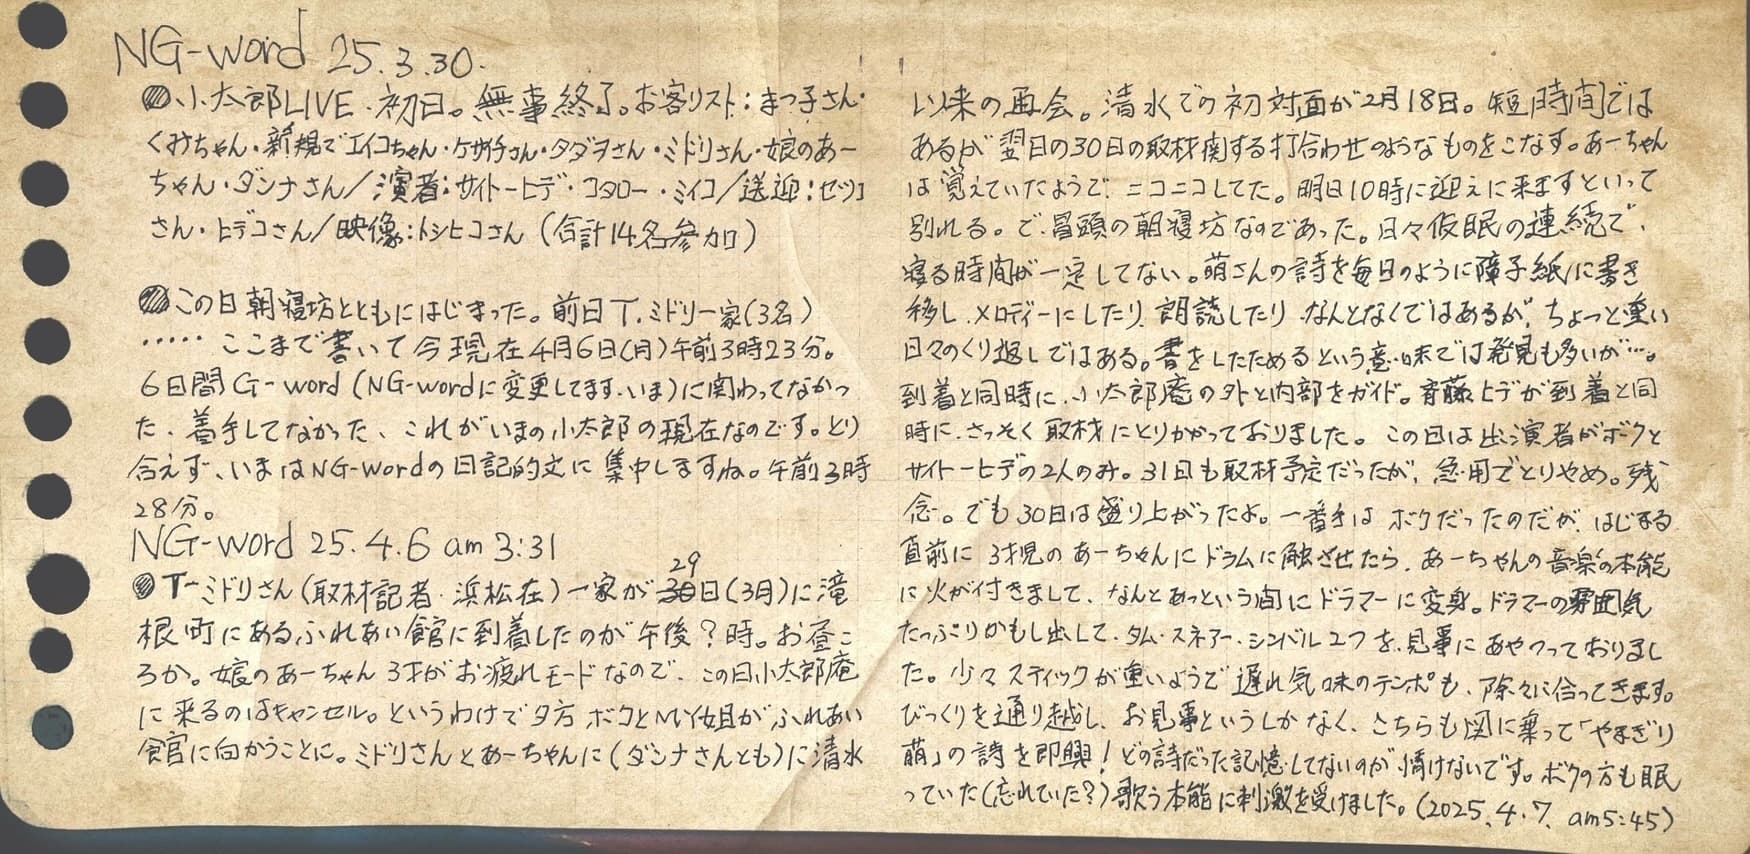 NG-word 25.3.30.
●小太郎LIVE・初日。無事終了。お客リスト:まつ子さん・
くみちゃん・新規でエイコちゃん・ケサイチさん・タダヲさん・ミドリさん・娘のあー
ちゃん・ダンナさん/演者:サイトーヒデ・コタロー・ミイコ/送迎:セツコ
さん・ヒデコさん/映像:トシヒコさん(合計14名参加)
●この日朝寝坊とともにはじまった。前日T.ミドリ一家(3名)
・・・・・ここまで書いて今現在4月6日(月)午前3時23分。
6日間G-word(NG-wordに変更してます、いま)に関わってなかっ
た、着手してなかった、これがいまの小太郎の現在なのです。とり
合えず、いまはNG-wordの日記的文に集中しますね。午前3時
28分。
NG-word 25.4.6 am 3:31
●T-ミドリさん(取材記者・浜松在)一家が29日(3月)に滝
根町にあるふれあい館に到着したのが午後?時。お昼こ
ろか。娘のあーちゃん3才がお疲れモードなので、この日小太郎庵
に来るのはキャンセル。というわけで夕方ボクとMy姐がふれあい
館に向かうことに。ミドリさんとあーちゃんに(ダンナさんとも)に清水
以来の再会。清水での初対面が2月18日。短時間では
あるが翌日の30日の取材関する打合わせのようなものをこなす。あーちゃん
は覚えていたようで、ニコニコしてた。明日10時に迎えに来ますといって
別れる。で、冒頭の朝寝坊なのであった。日々仮眠の連続で、
寝る時間が一定してない。萌さんの詩を毎日のように障子紙に書き
移し、メロディーにしたり、朗読したり、なんとなくではあるが、ちょっと重い
日々のくり返しではある。書をしたためるという意味では発見も多いが…。
到着と同時に、小太郎庵の外と内部をガイド。斉藤ヒデが到着と同
時に、さっそく取材にとりかかっておりました。この日は出演者がボクと
サイトーヒデの2人のみ。31日も取材予定だったが、急用でとりやめ。残
念。でも30日は盛り上がったよ。一番手はボクだったのだが、はじまる
直前に3才児のあーちゃんにドラムに触させたら、あーちゃんの音楽の本能
に火が付きまして、なんとあっという間にドラマーに変身。ドラマーの雰囲気
たっぷりかもし出して、タム・スネアー・シンバル2つを、見事にあやつっておりまし
た。少々スティックが重いようで遅れ気味のテンポも、除々に合ってきます。
びっくりを通り越し、お見事というしかなく、こちらも図に乗って「やまぎり
萌」の詩を即興!どの詩だった記憶してないのが情けないです。ボクの方も眠
っていた(忘れていた?)歌う本能に刺激を受けました。(2025.4.7. am5:45)